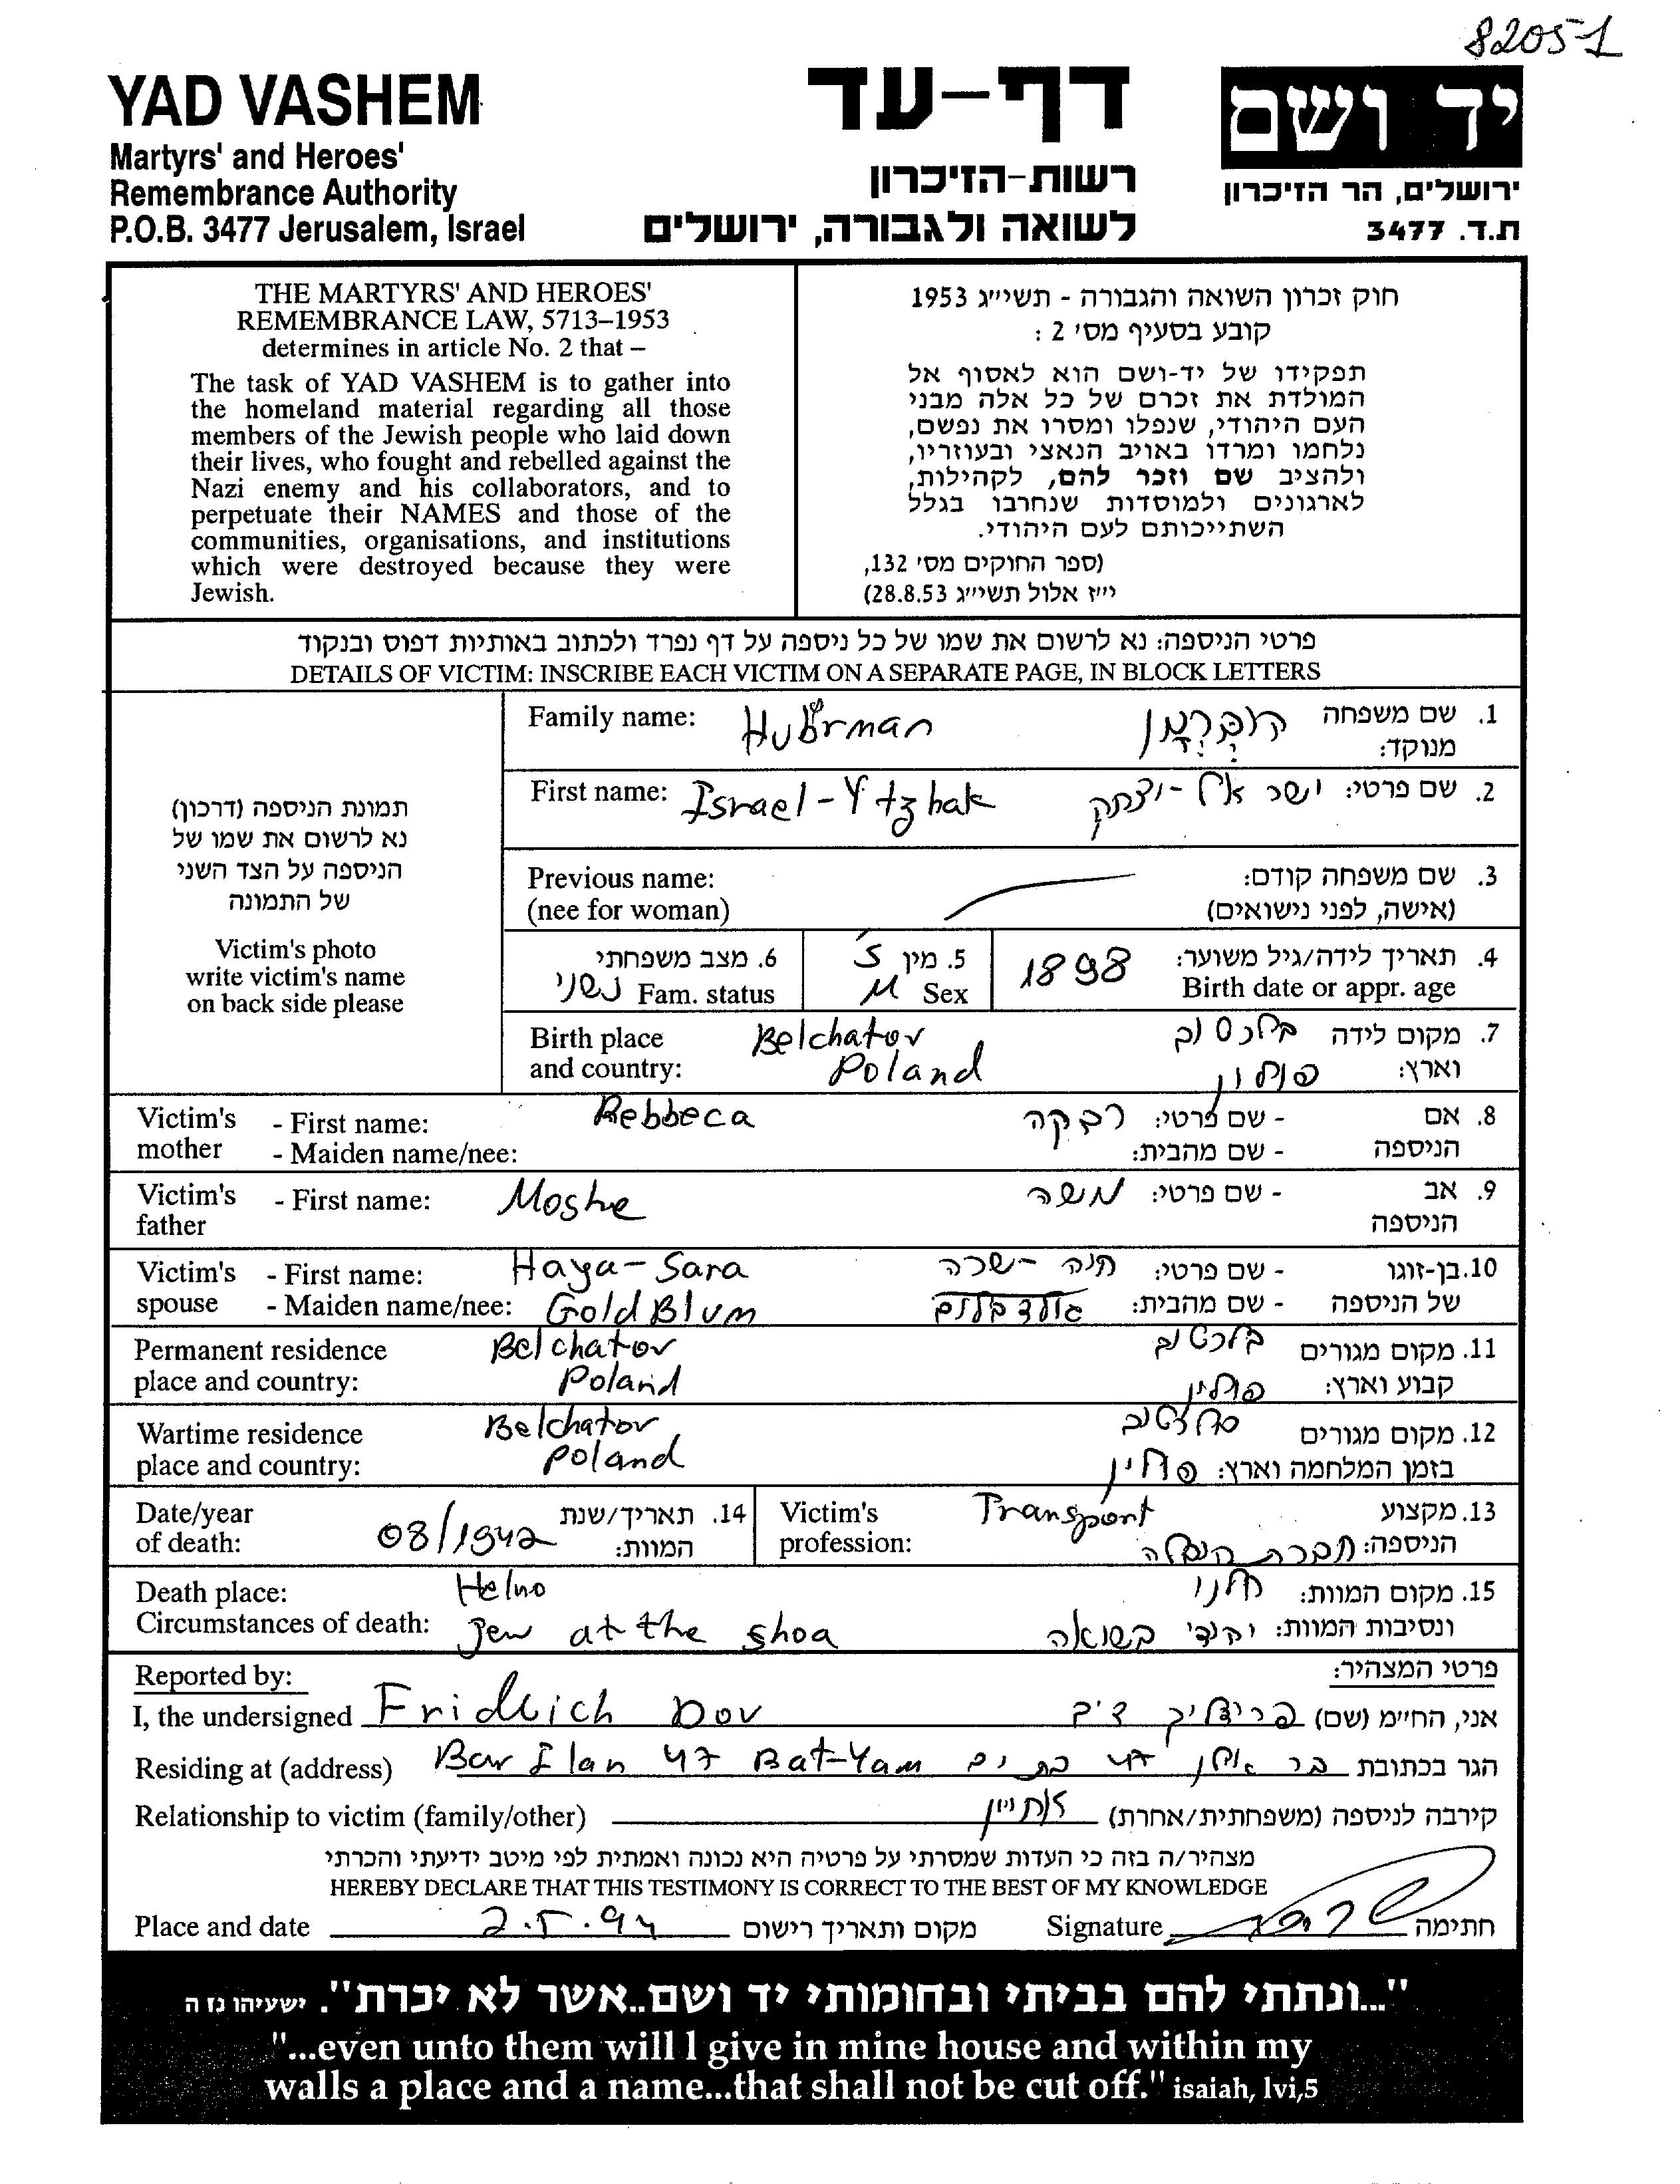 82051
YAD VASHEM
Martyrs' and Heroes'
Remembrance Authority
P.O.B. 3477 Jerusalem, Israel
דף-עד
רשות-הזיכרון
לשואה ולגבורה, ירושלים
יד ושם
ירושלים, הר הזיכרון
ת.ד. 3477
THE MARTYRS' AND HEROES'
REMEMBRANCE LAW, 5713–1953
determines in article No. 2 that –
The task of YAD VASHEM is to gather into
the homeland material regarding all those
members of the Jewish people who laid down
their lives, who fought and rebelled against the
Nazi enemy and his collaborators, and to
perpetuate their NAMES and those of the
communities, organisations, and institutions
which were destroyed because they were
Jewish.
חוק זכרון השואה והגבורה - תשי״ג 1953
קובע בסעיף מס׳ 2 :
תפקידו של יד-ושם הוא לאסוף אל
המולדת את זכרם של כל אלה מבני
העם היהודי, שנפלו ומסרו את נפשם,
נלחמו ומרדו באויב הנאצי ובעוזריו,
ולהציב שם וזכר להם, לקהילות,
לארגונים ולמוסדות שנחרבו בגלל
השתייכותם לעם היהודי.
(ספר החוקים מס׳ 132,
י״ז אלול תשי״ג 28.8.53)
פרטי הניספה: נא לרשום את שמו של כל ניספה על דף נפרד ולכתוב באותיות דפוס ובנקוד
DETAILS OF VICTIM: INSCRIBE EACH VICTIM ON A SEPARATE PAGE, IN BLOCK LETTERS
תמונת הניספה (דרכון)
נא לרשום את שמו של
הניספה על הצד השני
של התמונה
Victim's photo
write victim's name
on back side please
Family name: Huberman הוברמן 1. שם משפחה
מנוקד:
First name: Israel-Ytzhak ישראל-יצחק 2. שם פרטי:
Previous name: 3. שם משפחה קודם:
(nee for woman) (אישה, לפני נישואים)
6. מצב משפחתי 5. מין ז 4. תאריך לידה/גיל משוער:
נשוי Fam. status M Sex 1898 Birth date or appr. age
Birth place Belchatov בלכטוב 7. מקום לידה
and country: Poland פולין וארץ:
Victim's - First name: Rebbeca רבקה - שם פרטי: 8. אם
mother - Maiden name/nee: - שם מהבית: הניספה
Victim's - First name: Moshe משה - שם פרטי: 9. אב
father הניספה
Victim's - First name: Haya-Sara חיה-שרה - שם פרטי: 10. בן-זוגו
spouse - Maiden name/nee: GoldBlum גולדבלום - שם מהבית: של הניספה
Permanent residence Belchatov בלכטוב 11. מקום מגורים
place and country: Poland פולין קבוע וארץ:
Wartime residence Belchatov בלכטוב 12. מקום מגורים
place and country: Poland פולין בזמן המלחמה וארץ:
Date/year 14. תאריך/שנת Victim's Transport 13. מקצוע
of death: 08/1942 המוות: profession: חברת הובלה הניספה:
Death place: Helno 15. מקום המוות:
Circumstances of death: Jew at the shoa יהודי בשואה ונסיבות המוות:
Reported by: פרטי המצהיר:
I, the undersigned Fridlich Dov פרידליך דב אני, הח״מ (שם)
Residing at (address) Bar Ilan 47 Bat-Yam בר אילן 47 בת ים הגר בכתובת
Relationship to victim (family/other) אחיין קירבה לניספה (משפחתית/אחרת)
מצהיר/ה בזה כי העדות שמסרתי על פרטיה היא נכונה ואמתית לפי מיטב ידיעתי והכרתי
HEREBY DECLARE THAT THIS TESTIMONY IS CORRECT TO THE BEST OF MY KNOWLEDGE
Place and date 2.5.94 מקום ותאריך רישום Signature חתימה
"...ונתתי להם בביתי ובחומותי יד ושם..אשר לא יכרת". ישעיהו נז ה
"...even unto them will I give in mine house and within my
walls a place and a name...that shall not be cut off." isaiah, lvi,5